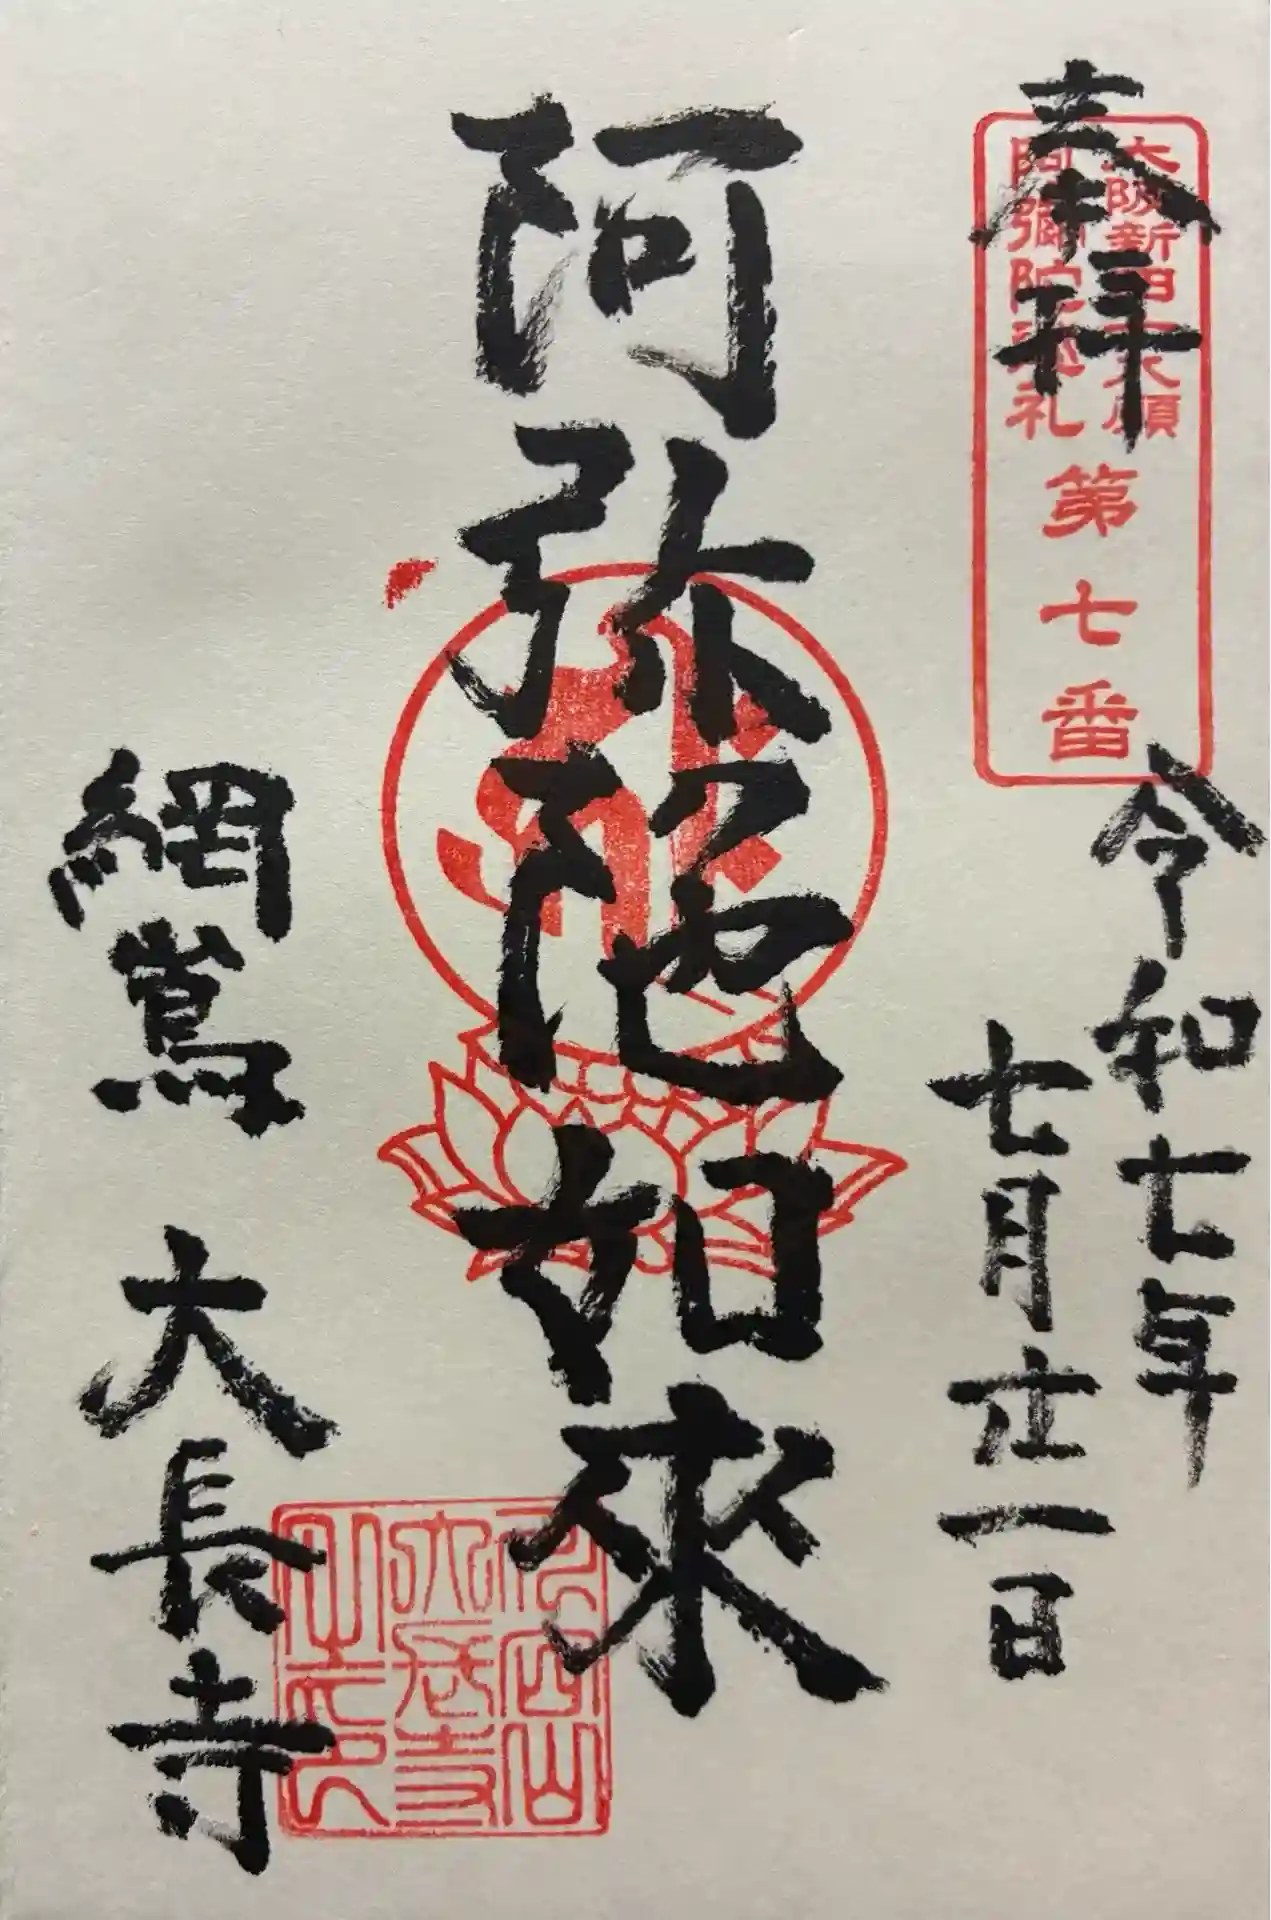 奉拝
大阪新四十八願
阿彌陀巡礼
第七番
令和七年
七月廿一日
阿弥陀如來
網嶌 大長寺
大長寺
之印